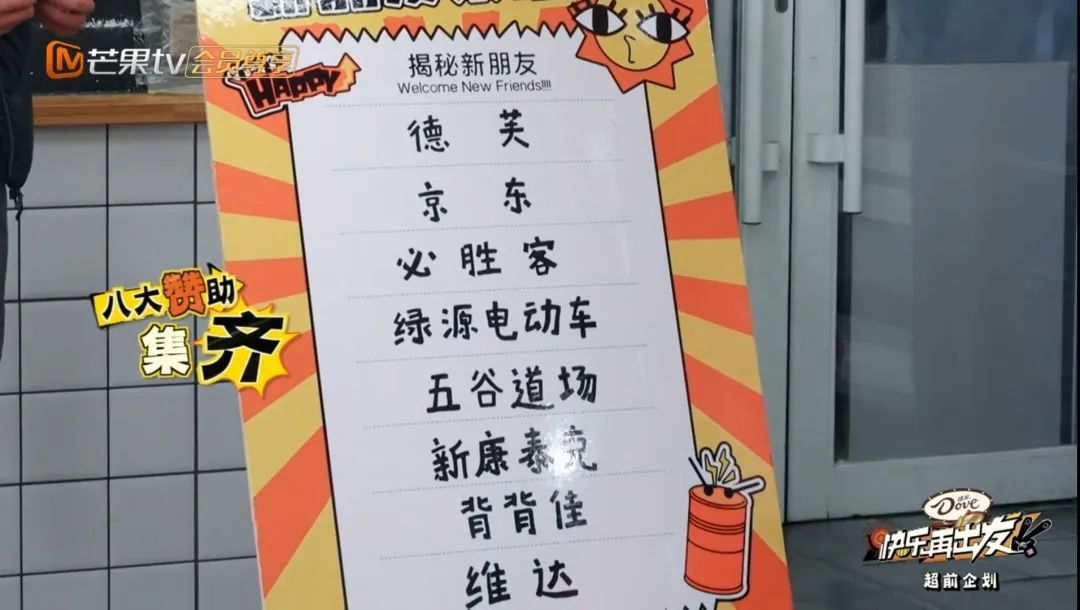 芒果tv会员尊享
HAPPY
揭秘新朋友
Welcome New Friends!!!!
德芙
京东
必胜客
绿源电动车
五谷道场
新康泰克
背背佳
维达
八大赞助
集齐
德芙
Dove
快乐再出发
超前企划